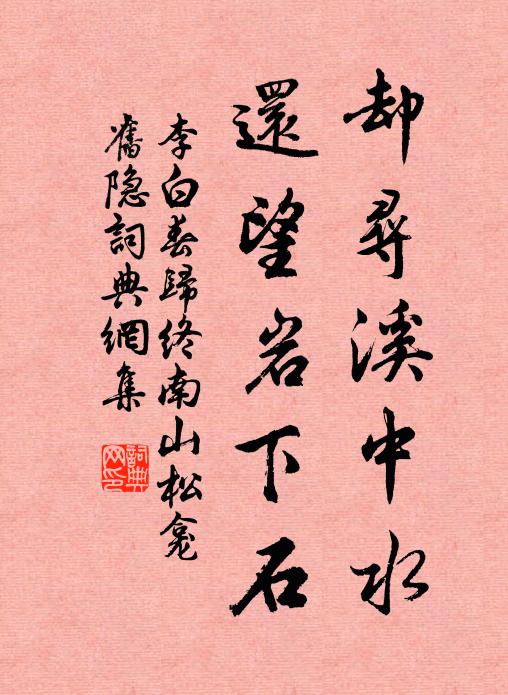 却尋溪中水
還望岩下石
李白春歸終南山松龕
舊隐詞典網集
詞典網印